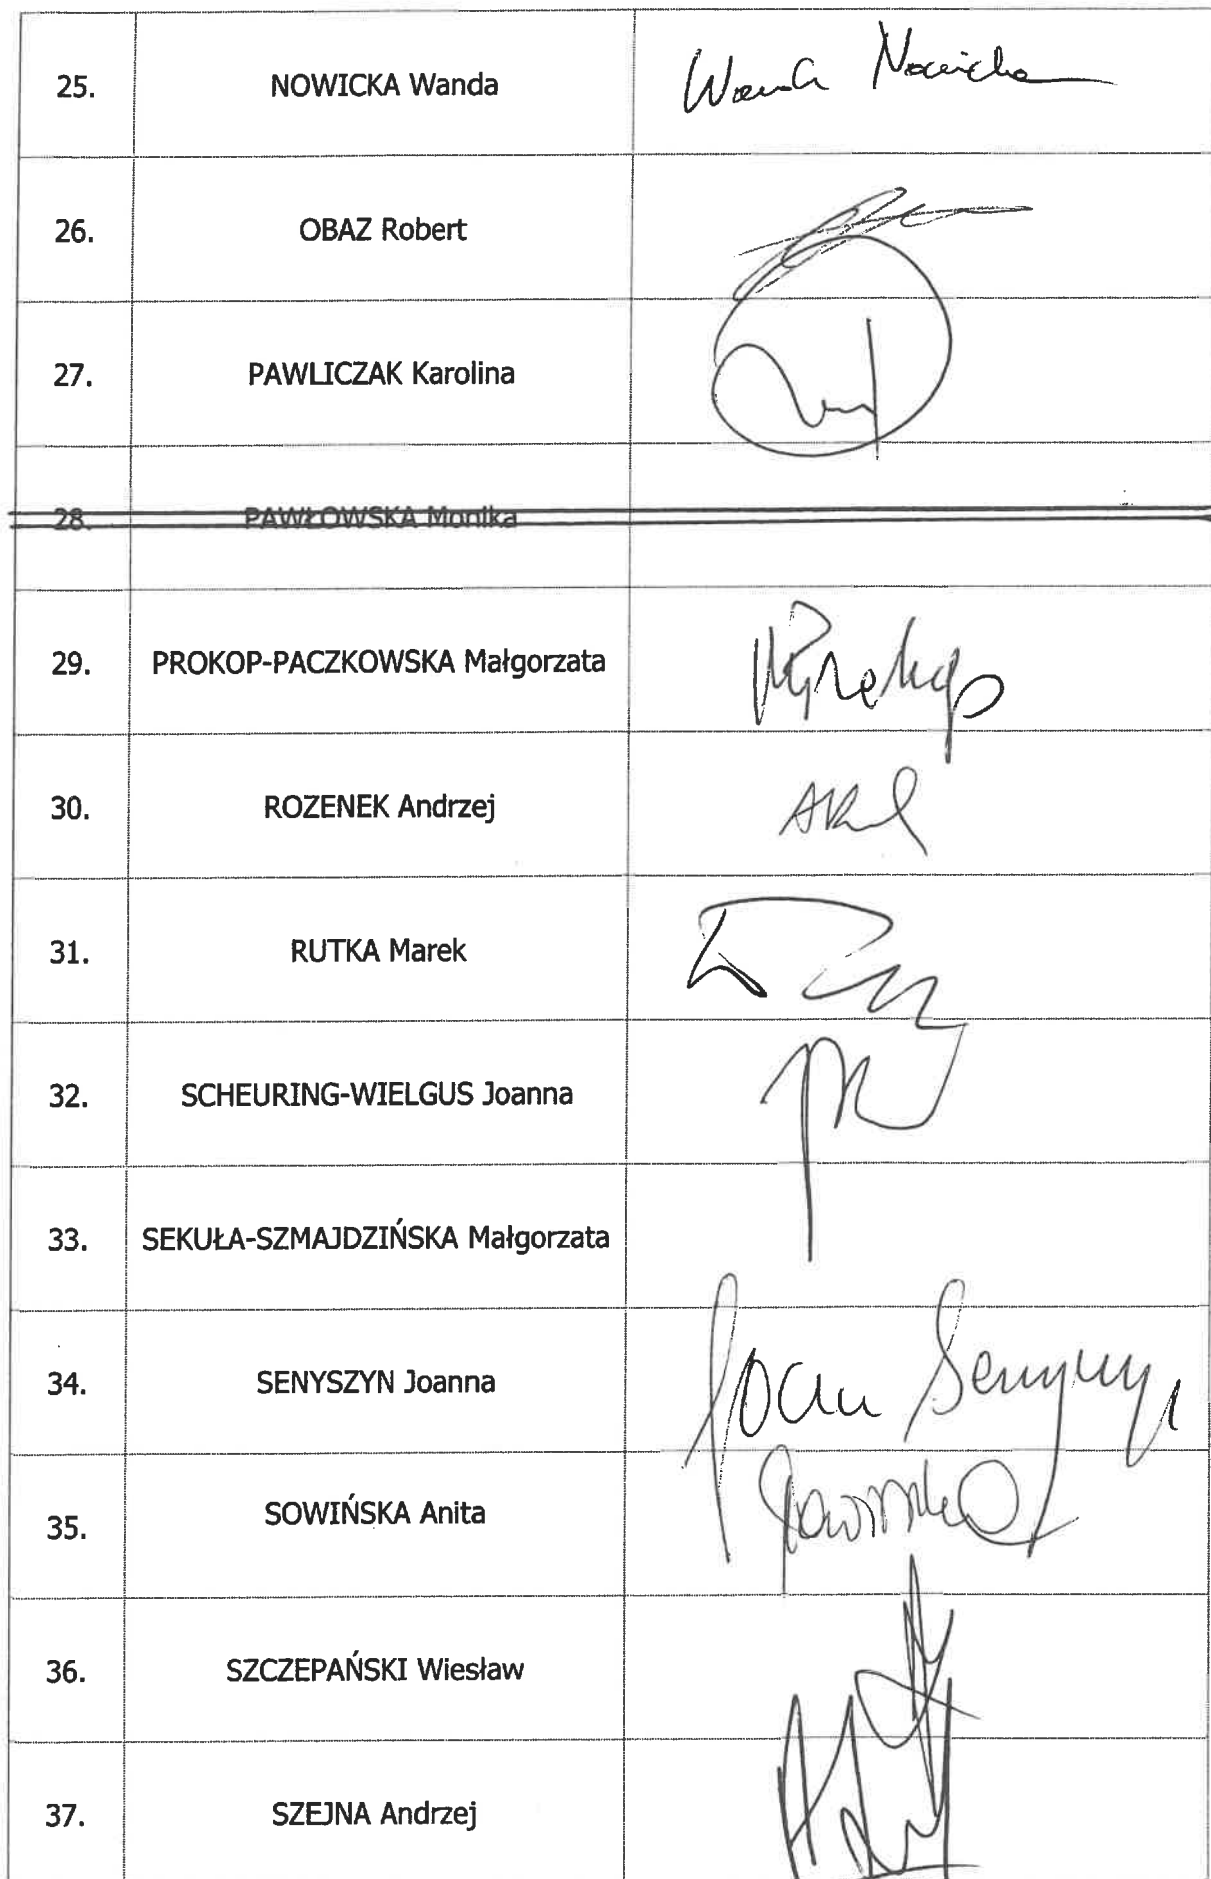 25. NOWICKA Wanda Wanda Nowicka
26. OBAZ Robert
27. PAWLICZAK Karolina
28. PAWŁOWSKA Monika
29. PROKOP-PACZKOWSKA Małgorzata
30. ROZENEK Andrzej
31. RUTKA Marek
32. SCHEURING-WIELGUS Joanna
33. SEKUŁA-SZMAJDZIŃSKA Małgorzata
34. SENYSZYN Joanna
35. SOWIŃSKA Anita
36. SZCZEPAŃSKI Wiesław
37. SZEJNA Andrzej